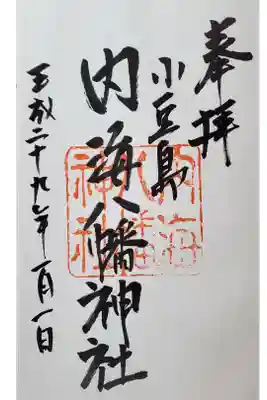 奉拝
小豆島
内海八幡神社
内海
八幡
神社
平成二十九年一月一日